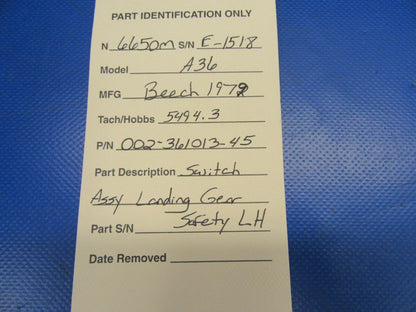 PART IDENTIFICATION ONLY
N 6650M S/N E-1518
Model A36
MFG Beech 1979
Tach/Hobbs 5494.3
P/N 002-361013-45
Part Description Switch
Assy Landing Gear
Part S/N Safety LH
Date Removed